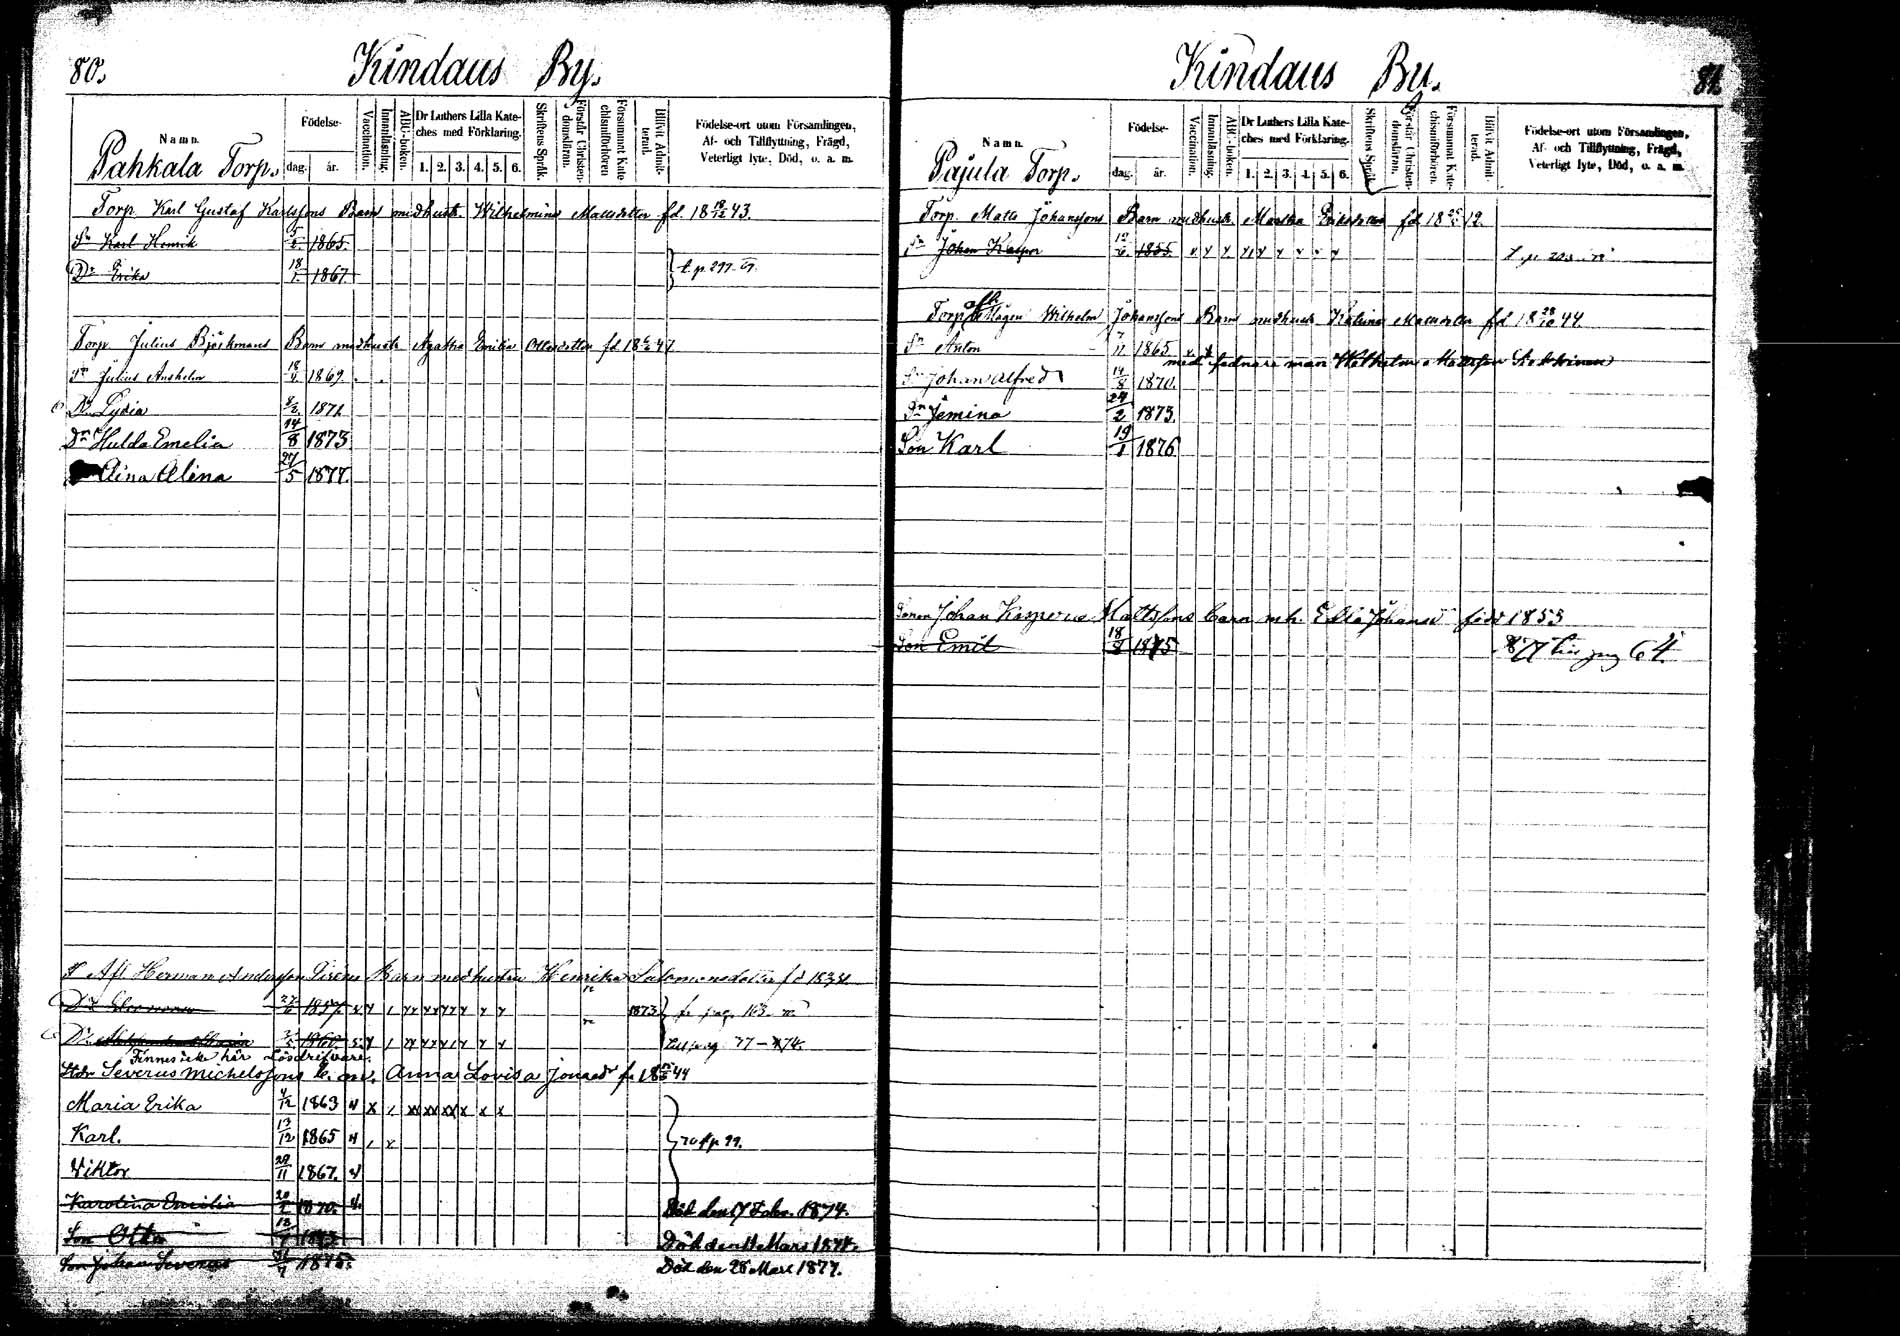 80.
Kindaus By.
Namn.
Födelse-
dag. år.
Vaccination.
Innanläsning.
ABC-boken.
Dr Luthers Lilla Kate-
ches med Förklaring.
1. 2. 3. 4. 5. 6.
Skriftens Språk.
Förstår Christen-
domsläran.
Försummat Kate-
chismiförhören
Blifvit Admit-
terad.
Födelse-ort utom Församlingen,
Af- och Tillflyttning, Frägd,
Veterligt lyte, Död, o. a. m.
Pahkala Torp.
Torp. Karl Gustaf Karlssons Barn med hust. Wilhelmina Mattsdotter fd. 18 19/12 43.
Sn Karl Henrik 5/2 1865.
Dr Erika 18/1 1867. t. p. 297. 69.
Torp. Julius Björkmans Barn med hustr Agatha Emilia Ottosdotter fd. 18 47.
Sn Julius Anshelm 18 1869.
Dr Lydia 8/2 1871
Dr Hulda Emelia 14/8 1873
Aina Alina 27/5 1877.
Afl Herman Andersson Barn med hustru Henrika Salomonsdotter fd 1834.
Dr 27/6 1857 1873 fr pag. 163.
Dr 1860 till pag 77-74.
Finnes icke här Lösdrifvare.
Severus Michelssons b. m. Anna Lovisa Jonasdr f. 18 44
Maria Erika 4/12 1863
Karl. 13/12 1865 p. 99.
Viktor 29/11 1867.
Karolina Emilia 20/2 1870. Död den 17 Febr. 1874.
Son Otto 13 1873 Död den 11 Mars 1874.
Son Johan Severus 21/7 1875. Död den 28 Mars 1877.
81.
Kindaus By.
Namn.
Födelse-
dag. år.
Vaccination.
Innanläsning.
ABC-boken.
Dr Luthers Lilla Kate-
ches med Förklaring.
1. 2. 3. 4. 5. 6.
Skriftens Språk
Förstår Christen-
domsläran.
Försummat Kate-
chismiförhören.
Blifvit Admit-
terad.
Födelse-ort utom Församlingen,
Af- och Tillflyttning, Frägd,
Veterligt lyte, Död, o. a. m.
Pajula Torp.
Torp. Matts Johanssons Barn med hustr. Martha Eriksdotter fd 18 12.
Sn Johan Kasper 12/6 1855.
Torp afl. Wilhelm Johanssons Barn med hustr Katrina Mattsdotter fd. 18 28/10 44.
Sn Anton 7/11 1865
med sednare man Wilhelm Mattsson
Sn Johan Alfred 14/8 1870.
Dr Jemina 24/2 1873.
Son Karl 19/1 1876
Sonen Johan Kasperus Mattssons barn m h. Edla Johansd född 1853
Son Emil 18/8 1875 64.